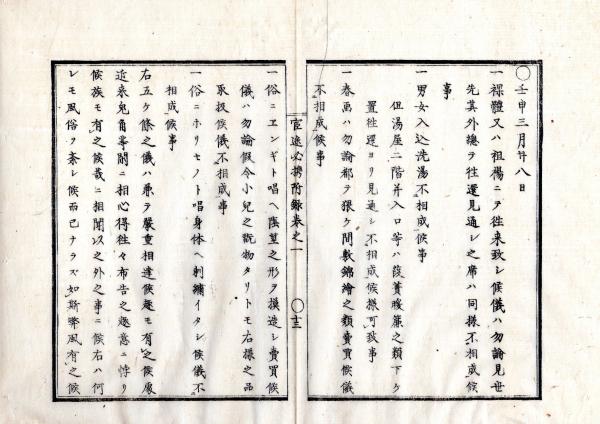 〇壬申三月廿八日
一裸體又ハ袒裼ニヲ往来致シ候儀ハ勿論見世
先其外總ヲ往還見通シ之席ハ同様不相成候
事
一男女入込洗湯不相成候事
但湯屋二階并入口等ハ葭簀暖簾之類下ケ
置往還ヨリ見通シ不相成候様可致事
一春画ハ勿論都ヲ猥ケ間敷錦繪之類賣買候儀
不相成候事
官途必携附録巻之一 〇十三
一俗ニヱンギト唱ヘ陰莖之形ヲ模造シ賣買候
儀ハ勿論假令小兒之翫物タリトモ右様之品
取扱候儀不相成事
一俗ニホリモノト唱身体ヘ刺繡イタシ候儀不
相成候事
右五ケ條之儀ハ兼ヲ嚴重相達候趣モ有之候處
近来兒角等閑ニ相心得往々布告之趣意ニ悖リ
候族モ有之候哉ニ相聞以之外之事ニ候右ハ何
レモ風俗ヲ紊レ候而已ナラス如斯弊風有之候